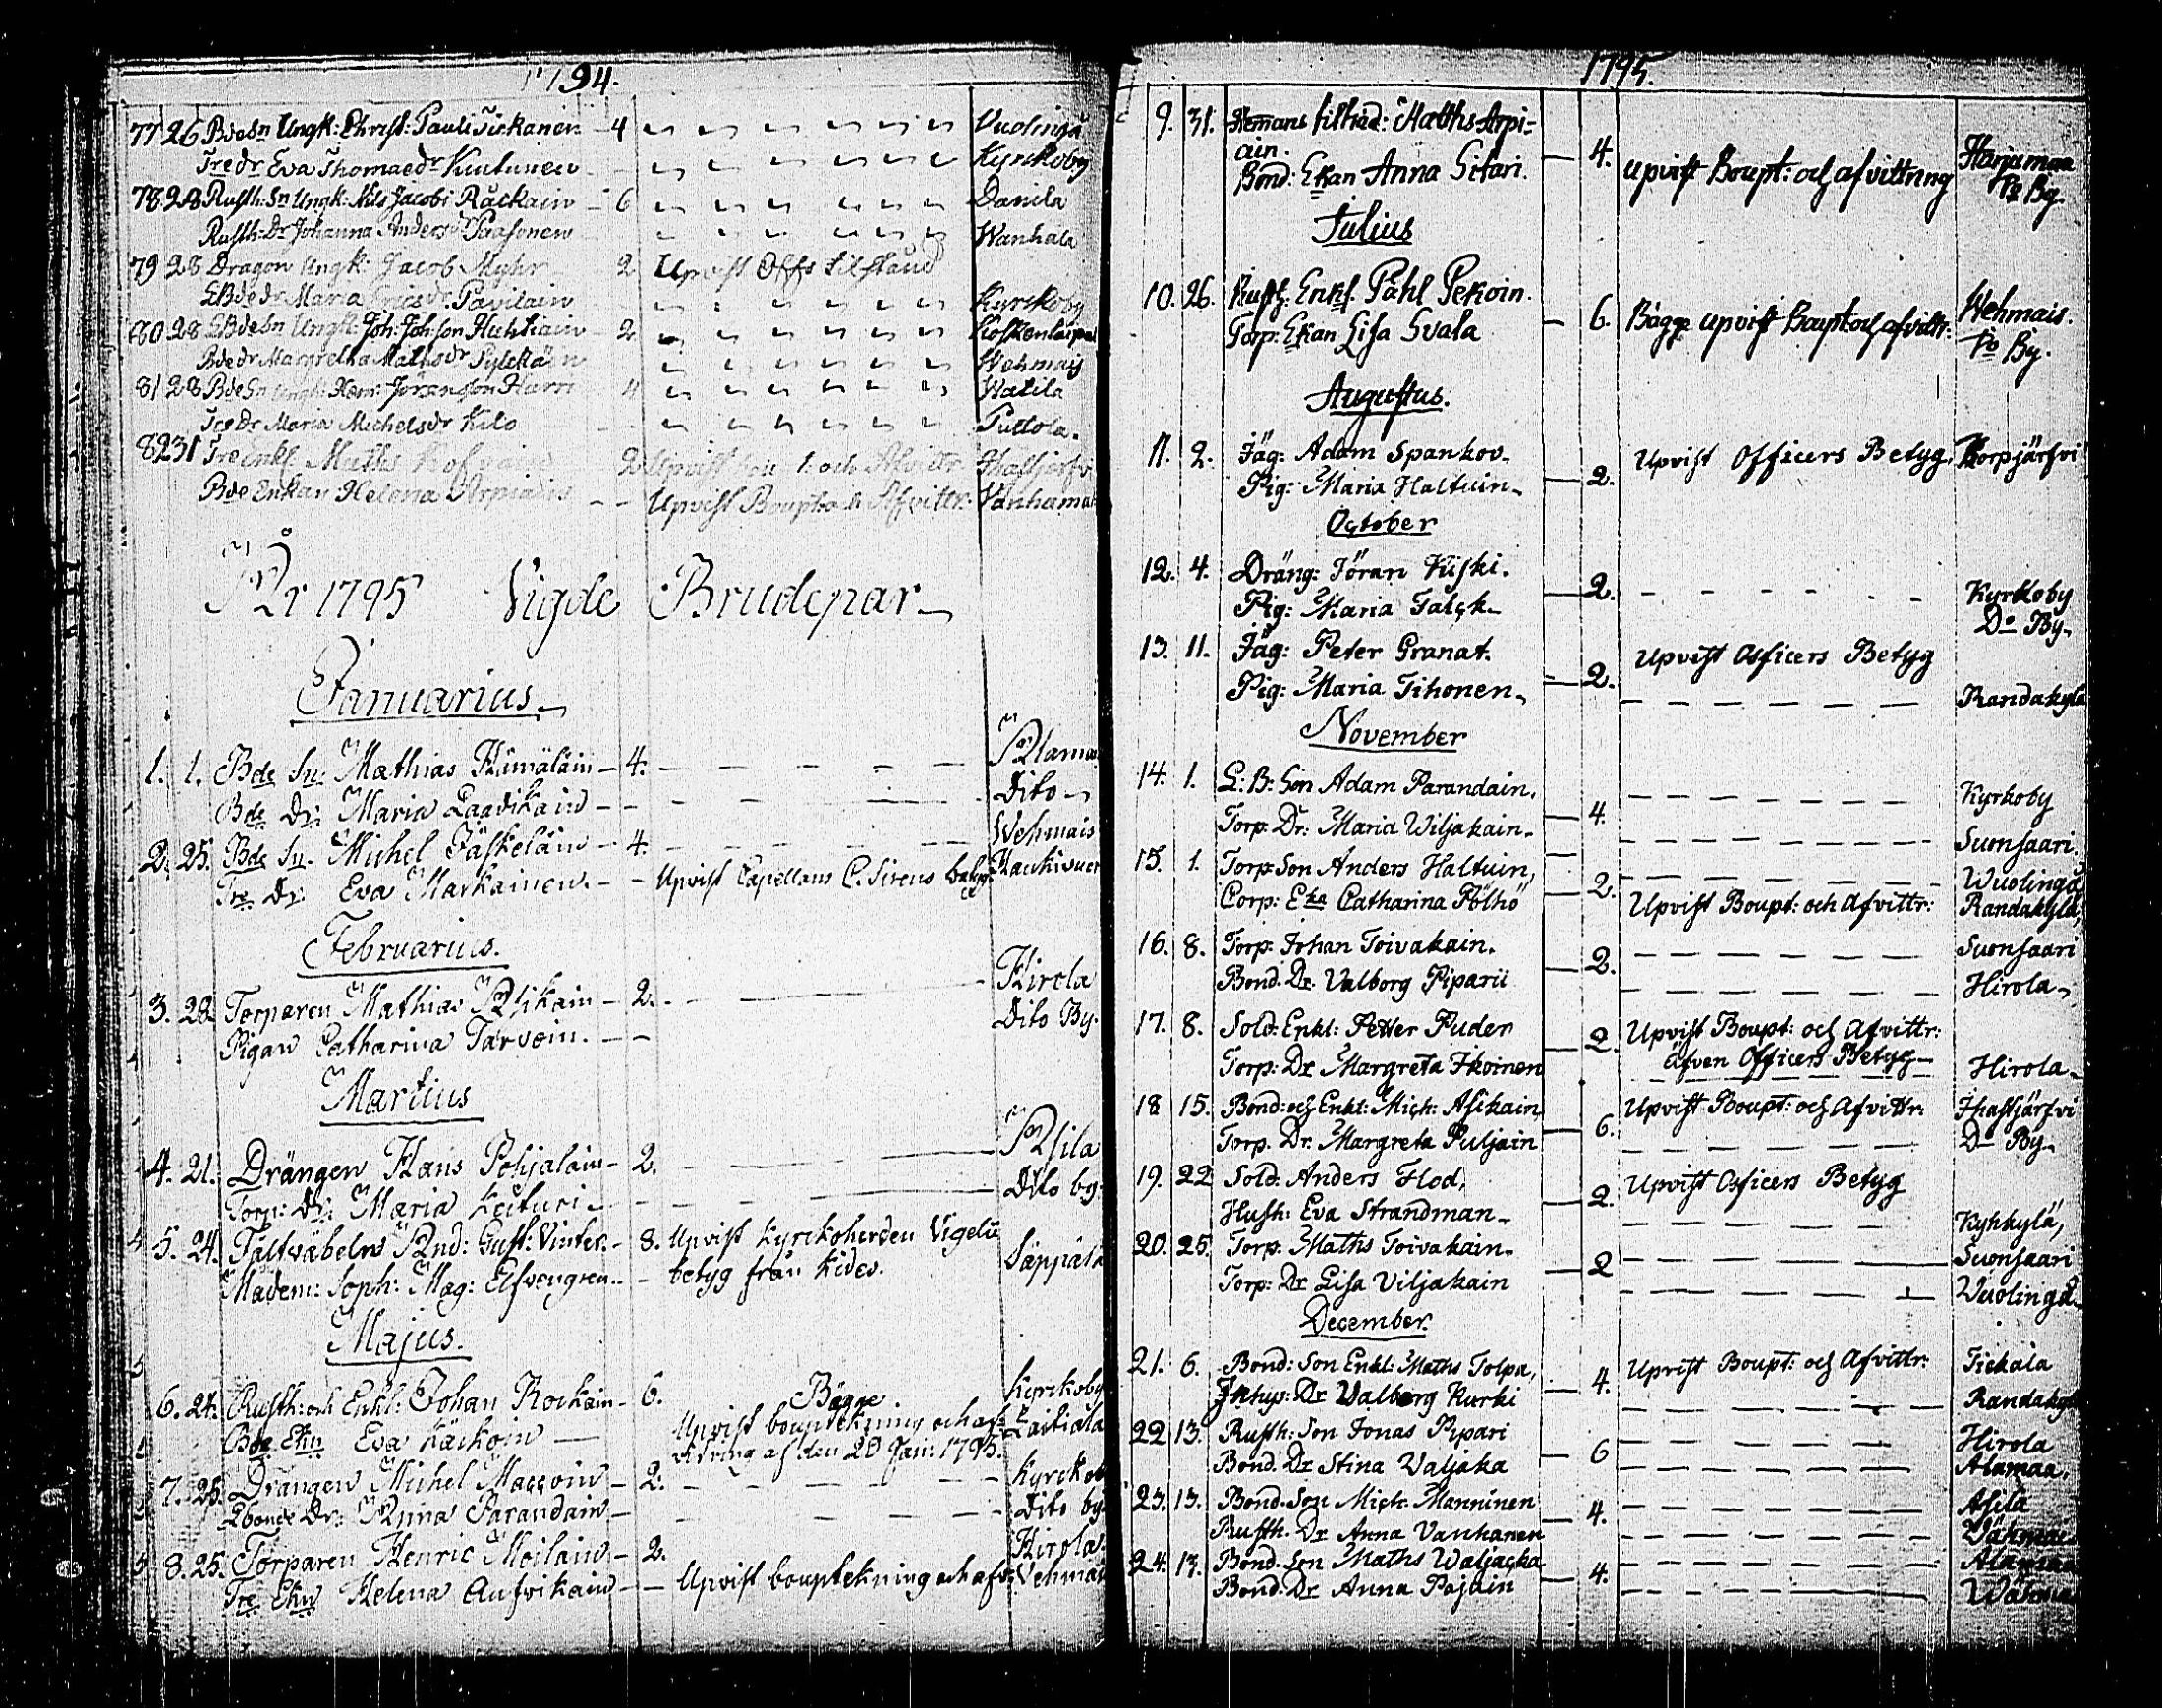 1794.
77 26 Bdesn Ungk: Christ: Pauli Tickanen - 4 Vuolingå
Tredr Eva Thomaedr Kuutunen Kyrckoby
78 28 Rusth: Sn Ungk: Nils Jacobi Räckäin - 6 Danila
Rusth: Dr Johanna Anders Dr Paasonen Wanhala
79 28 Dragon Ungk: Jacob Myhr 2 Upvist Offs tilstånd
Bdedr Maria Ericsdr Pavilain Kyrckoby
80 28 Bdesn Ungk: Joh: Johsson Huhtiain - 2
Bdedr Margretha Mathsdr Wehmais
81 28 BdeSn Ungk: Hem: Harri 4 Watila
TreDr Maria Michelsdr Kilo Puttola.
82 31 Treenkl Maths 2
Bde Enkan Helena Arpiain - - Upvist Boupt och Afvittr. Vanhamä
År 1795 Vigde Brudepar
Januarius.
1. 1. Bde Sn: Mathias Himäläin - 4. Alama
Bde Dr: Maria Laadikain - - Dito
2. 25. Bde Sn. Michel Jäskeläin - 4. Wehmais
Tre Dr: Eva Markainen. - - Upvist Capellans C. Sirens betyg. Haukivuer
Februarius.
3. 28. Torparen Mathias Asikain - 2. Hirola
Pigan Catharina Tarvoin. - - Dito By.
Martius
4. 21. Drängen Hans Pohjalain - 2. Asila
Torp: Dr: Maria Keituri - Dito by.
5. 24. Fältväbeln And: Gust: Vinter. - 8. Upvist Kyrckoherden Vigelii Säppälä
Madem: Soph: Mag: Elfvengren. - - betyg från Kides.
Majus.
6. 24. Rusth: och Enkl: Johan Rockain - 6. Bägge. Kyrckoby
Bde Ekn Eva Käikoin - Upvist boupteckning och af- Laitiala
vitring af den 20 Jan: 1795.
7. 25. Drängen Michel Maccoin - 2. Kyrckob
Bonde Dr: Anna Parandain - Dito by
8. 25. Torparen Henric Moilain - 2. Hirola.
Tre Ekn Helena Aufvikain - - Upvist boupteckning och afv: Vehmais
1795.
9. 31. Hemans tilträd: Matths Arpi-
ain. 4. upvist Boupt: och afvittring Harjumaa
Bond: Ekan Anna Sitari. By.
Julius
10. 26. Rusth: Enkl: Påhl Pekoin. 6. Bägge upvist Boupt och afvittr: Wehmais.
Torp: Ekan Lisa Svala Do By.
Augustus.
11. 2. Jäg: Adam Spankov. 2. Upvist Officers Betyg. Korpjärfvi
Pig: Maria Haltuin
October
12. 4. Dräng: Jöran Kiiski. 2. Kyrkoby
Pig: Maria Falck Do By.
13. 11. Jäg: Peter Granat. 2. Upvist Officers Betyg
Pig: Maria Tihonen. Randakylä
November
14. 1. L: B: Son Adam Parandain. 4. Kyrkoby
Torp: Dr: Maria Wiljakain. Suonsaari.
15. 1. Torp: Son Anders Haltuin, 2. Wuolingå
Corp: Eka Catharina Pölhö Upvist Boupt: och Afvittr: Randakylä,
16. 8. Torp: Johan Toivakain. 2. Suonsaari
Bond. Dr. Valborg Piparii Hirola
17. 8. Sold: Enkl: Petter Puder 2. Upvist Boupt: och Afvittr:
Torp: Dr Margreta Ikoinen äfven Officers Betyg Hirola
18 15. Bond: och Enkl: Mich: Asikain, 6. Upvist Boupt: och Afvittr: Ihastjärfvi
Torp. Dr. Margreta Puljain Do By
19. 22 Sold. Anders Flod, 2. Upvist Officers Betyg
Hush: Eva Strandman Kyhkylä,
20. 25. Torp. Maths Toivakain 2 Suonsaari
Torp: Dr Lisa Viljakain Wuolingå
December.
21. 6. Bond: Son Enkl: Maths Tolpa, 4. Upvist Boupt: och Afvittr: Tickala
Inhys: Dr Valborg Kurki Randakyl
22 13. Rusth: Son Jonas Pipari 6 Hirola
Bond. Dr Stina Valjaka Alamaa.
23. 13. Bond. Son Mich: Manninen 4. Asila
Rusth. Dr Anna Vanhanen
24. 13. Bond. Son Maths Waljacka 4. Alamaa
Bond. Dr Anna Pajain